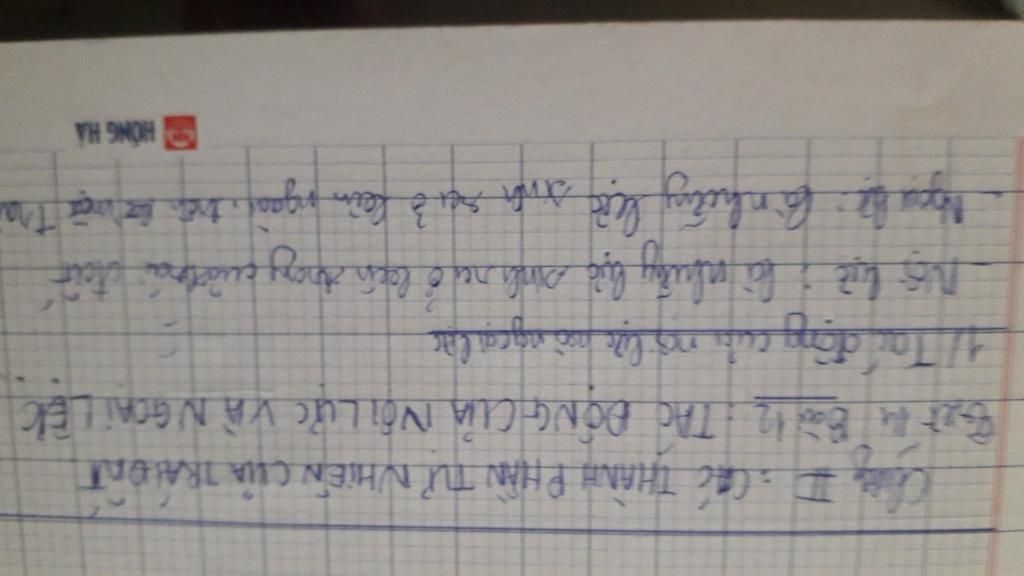 Chương II: CÁC THÀNH PHẦN TỰ NHIÊN CỦA TRÁI ĐẤT
Tiết 14 Bài 12: TÁC ĐỘNG CỦA NỘI LỰC VÀ NGOẠI LỰC
1/ Tác động của nội lực và ngoại lực
- Nội lực: là những lực sinh ra ở bên trong của trái đất
- Ngoại lực: là những lực sinh ra ở bên ngoài, trên bề mặt
HỒNG HÀ